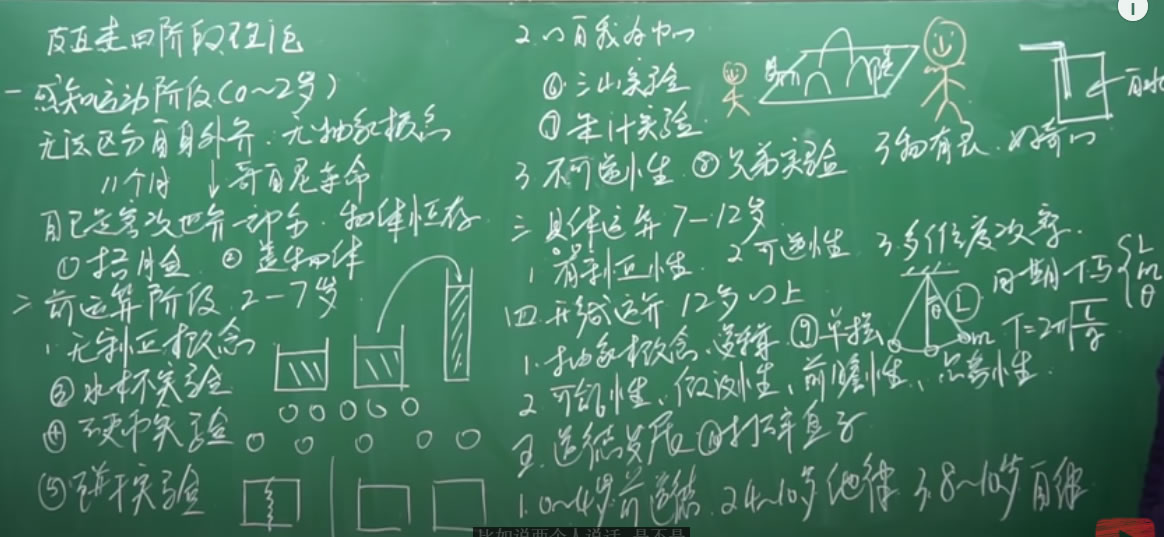 皮亚杰四阶段理论
一 感知运动阶段(0~2岁)
无法区分自身外界:无抽象概念
11个月 ↓ 哥白尼革命
自己是客观世界一部分 物体恒存
① 找盒 ② 盖物体
二 前运算阶段 2-7岁
1. 无守恒概念
③ 水杯实验
④ 硬币实验
⑤ 饼干实验
2. 以自我为中心
⑥ 三山实验
⑦ 牛计实验
3. 不可逆性 ⑧ 兄弟实验 3 物有灵、好奇心
三 具体运算 7-12岁
1. 有守恒性 2 可逆性 3. 多维度次序
四. 形式运算 12岁以上
1. 抽象概念、逻辑 ⑨ 单摆
L
θ
m
周期T与 { L m θ
T=2π√L/g
2. 可逆性、假设性、前瞻性、完善性
五. 道德发展 ⑩ 打碎盘子
1. 0~4岁前道德 2. 4~10岁他律 3. 8~10岁自律
比如说两个人说话 是不是